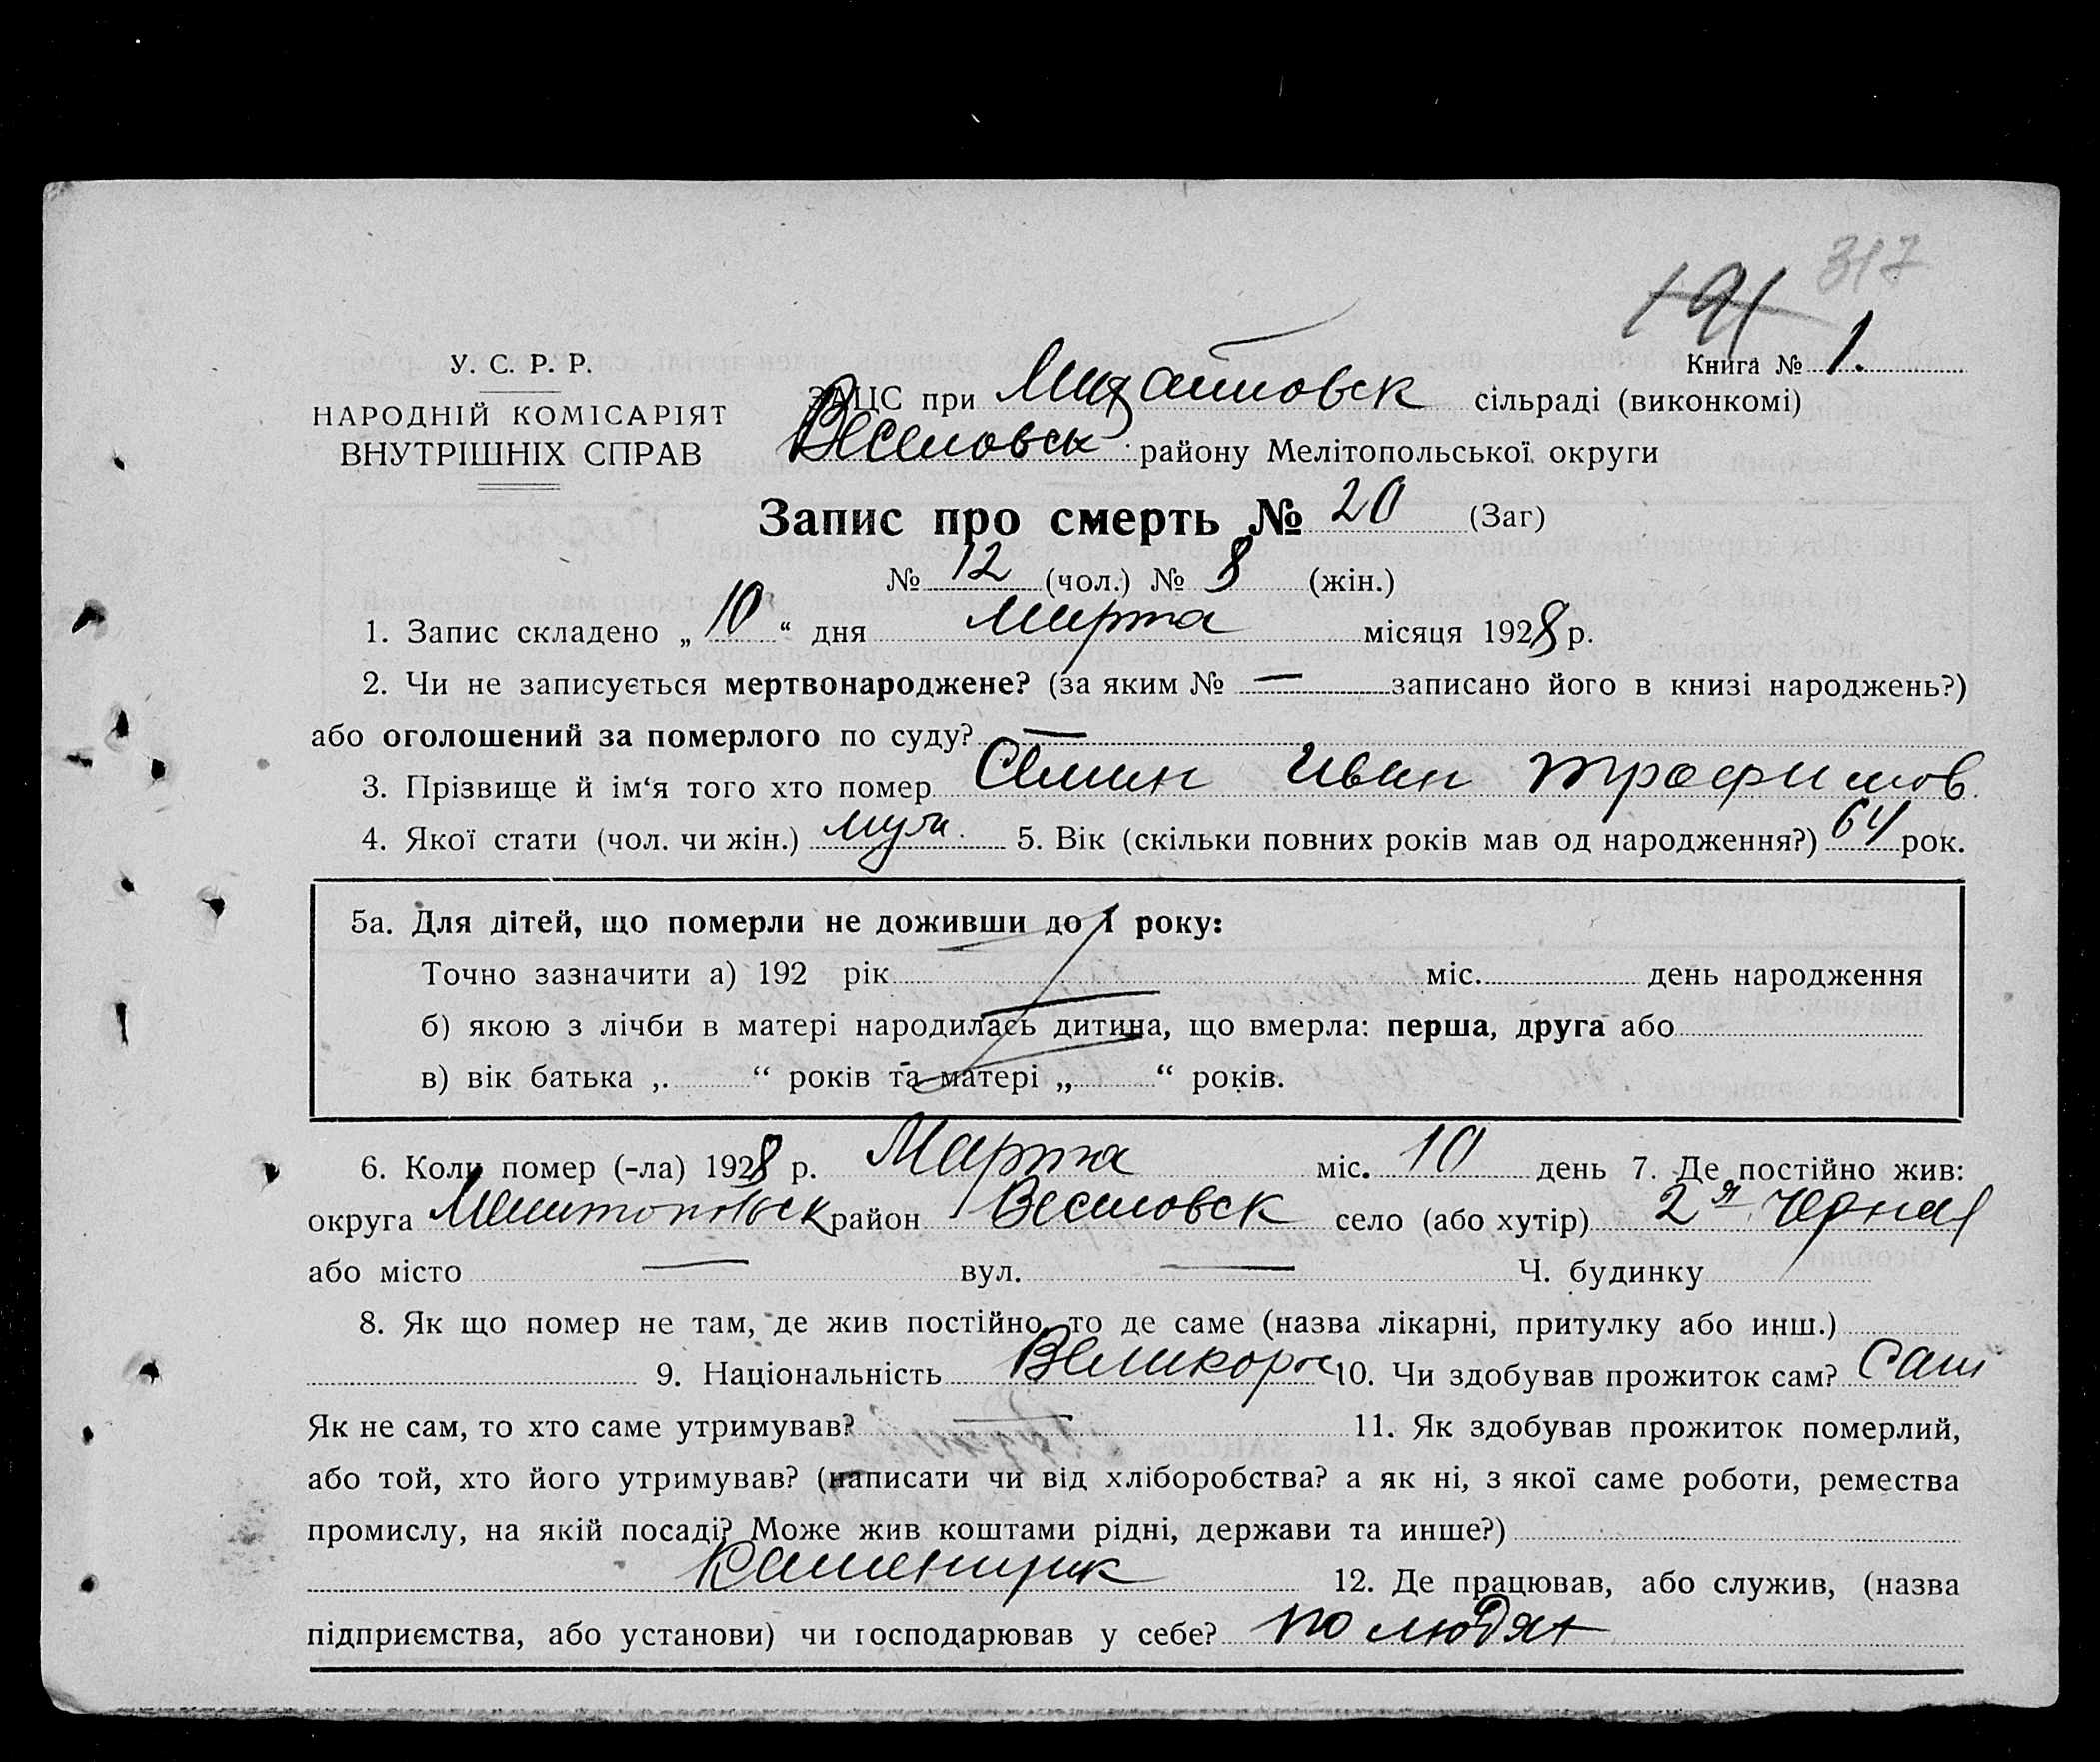 317
191
Книга № 1.
У. С. Р. Р.
НАРОДНІЙ КОМІСАРІЯТ
ВНУТРІШНІХ СПРАВ
ЗАЦС при сільраді (виконкомі)
Веселовск району Мелітопольської округи
Запис про смерть № 20 (Заг)
№ 12 (чол.) № 8 (жін.)
1. Запис складено „ 10 “ дня Марта місяця 1928 р.
2. Чи не записується мертвонароджене? (за яким № — записано його в книзі народжень?)
або оголошений за померлого по суду? —
3. Прізвище й ім‘я того хто помер Сёмин Иван Трофимов
4. Якої стати (чол. чи жін.) муж. 5. Вік (скільки повних років мав од народження?) 64 рок.
5а. Для дітей, що померли не доживши до 1 року:
Точно зазначити а) 192 рік міс. день народження
б) якою з лічби в матері народилась дитина, що вмерла: перша, друга або
в) вік батька ,. “ років та матері „ “ років.
6. Коли помер (-ла) 1928 р. Марта міс. 10 день 7. Де постійно жив:
округа Мелитопольск район Веселовск село (або хутір) 2я Черная
або місто — вул. — Ч. будинку
8. Як що помер не там, де жив постійно, то де саме (назва лікарні, притулку або инш.)
9. Національність Великорос 10. Чи здобував прожиток сам? Сам
Як не сам, то хто саме утримував? — 11. Як здобував прожиток померлий,
або той, хто його утримував? (написати чи від хліборобства? а як ні, з якої саме роботи, ремества
промислу, на якій посаді? Може жив коштами рідні, держави та инше?)
Каменщик 12. Де працював, або служив, (назва
підприємства, або установи) чи господарював у себе? по людях